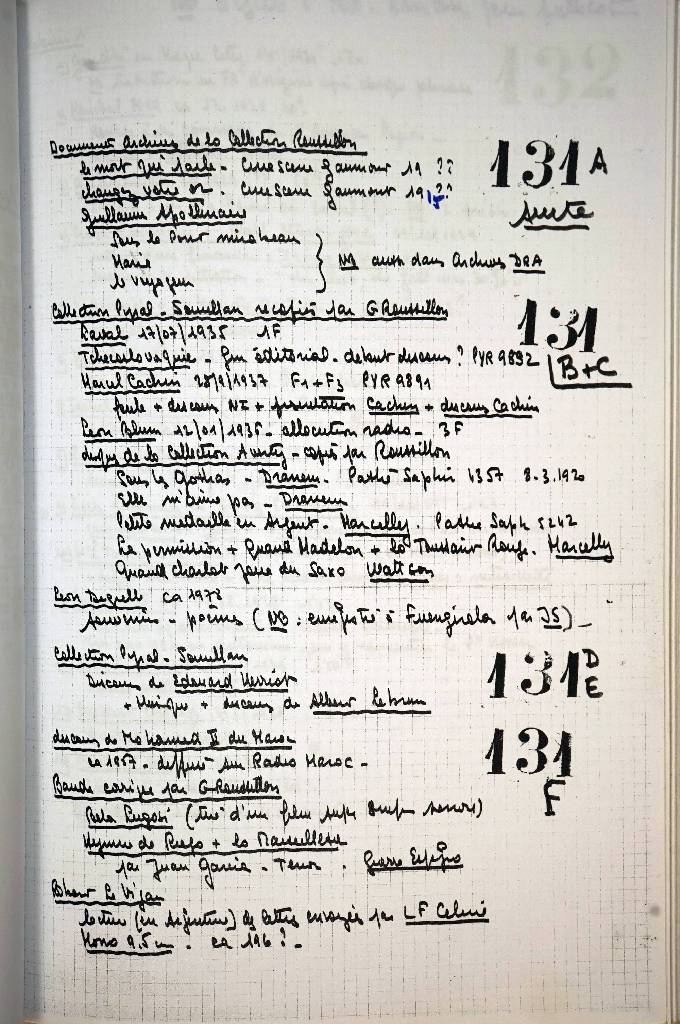 Documents Archives de la Collection Roussillon
131 A
suite
le mort qui parle - Cinescene Gaumont 19 ??
changez votre or - Cinescene Gaumont 1915 ??
Guillaume Apollinaire
Sous le Pont mirabeau
Marie
le voyageur
NB aussi dans Archives DRA
Collection Pypal - Souvillan recopiés par G Roussillon
131
B+C
Laval 17/07/1935 1F
Tchecoslovaquie - fin éditorial - debut discours ? PYR 9892
Marcel Cachin 28/9/1937 F1 + F3 PYR 9891
foule + discours NI + presentation Cachin + discours Cachin
Leon Blum 12/01/1935 - allocution radio - 3F
disques de la Collection Averty - copiés par Roussillon
Sous les Gothas - Dranem - Pathé Saphir 4357 8.3.1920
Elle m'aime pas - Dranem
Petite medaille en Argent - Marcelly. Pathe Saph 5242
La permission + Quand Madelon + la Toussaint Rouge. Marcelly
Quand Charlot joue du Saxo Watt son
Leon Degrelle ca 1978
souvenirs - poèmes (NB: enregistré à Fuengirola par JS)
Collection Pypal - Souvillan
131 D
E
Discours de Edouard Herriot
+ Musique + discours de Albert Lebrun
discours de Mohamed V du Maroc
131
F
ca 1957 - diffusé sur Radio Maroc -
Bande corrigée par G Roussillon
Bela Lugosi (tiré d'un film sonore)
Hymne de Riego + la Marseillaise
par Juan Garcia - Tenor . Guerre Espagne
Robert Le Vigan
lecture (en Argentine) de lettres envoyées par LF Celine
Mono 9,5 cm . ca 196? -